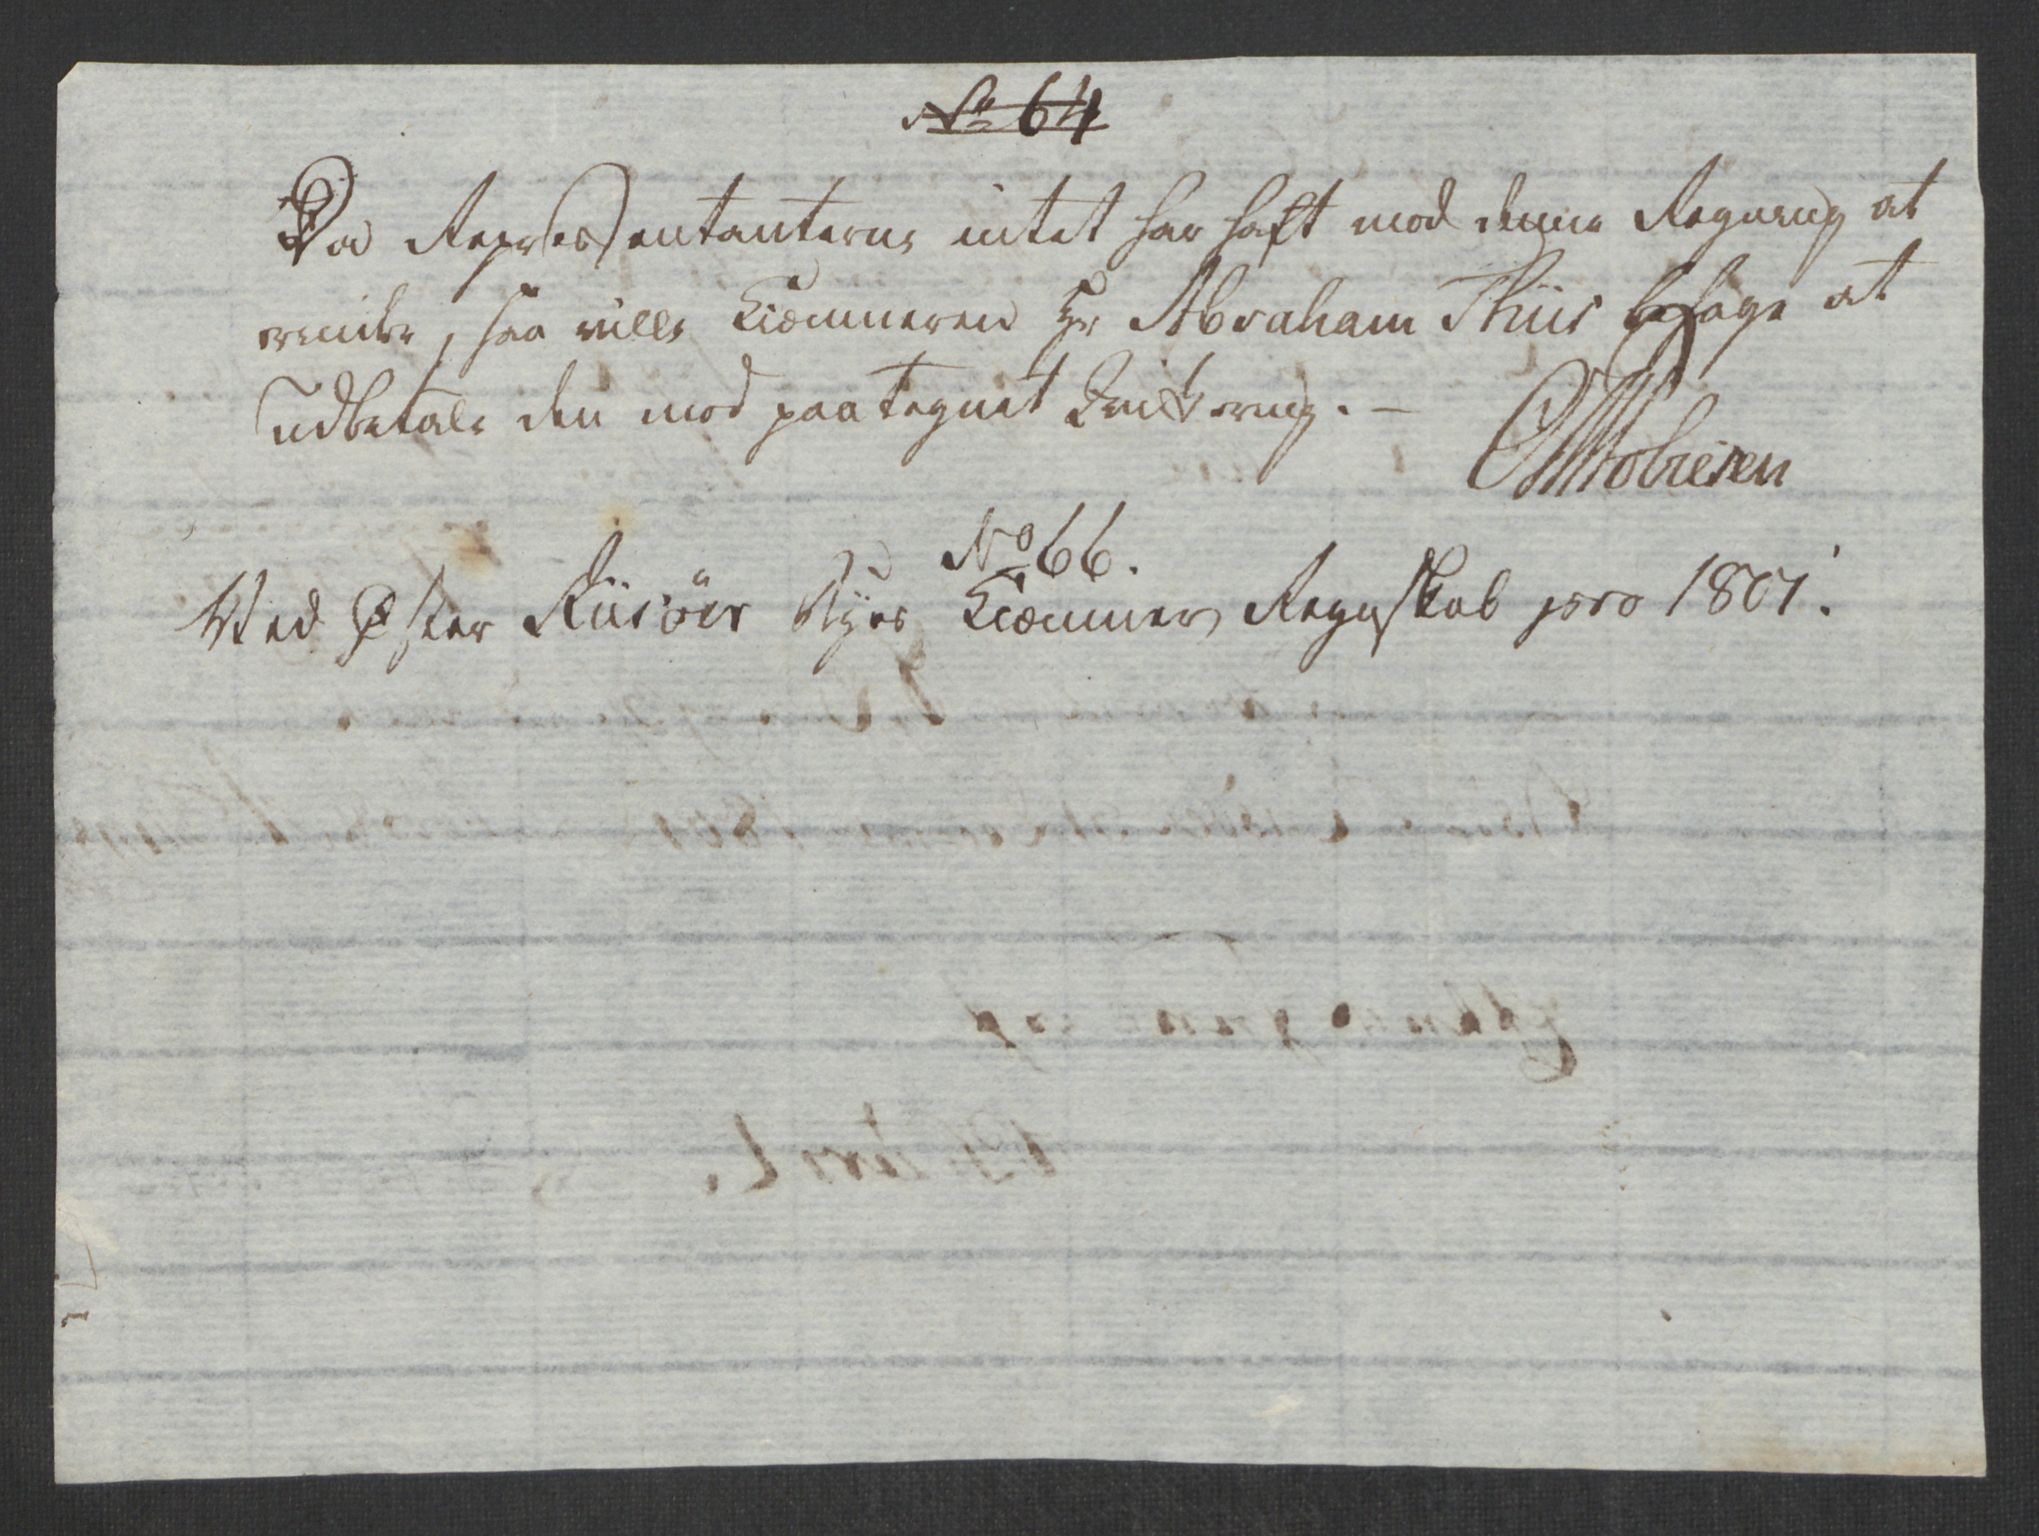 No 64
Da Repræsentanterne intet har haft mod denne Regning at
erindre, saa ville Kiæmneren Hr Abraham Thiis behage at
udbetale den mod paategnet Qvittering. –
No 66.
Ved Øster Riisöer Byes Kiæmner Regnskab pro 1801.